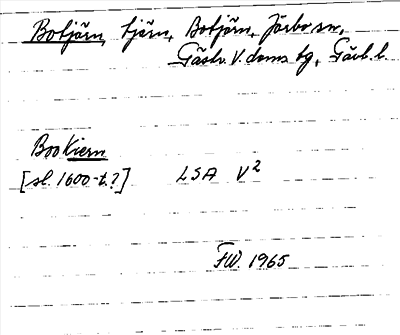 Botjärn, tjärn, Botjärn, Järbo sn,
Gästr. V. doms tg, Gävl. l.
Bookiern
[sl. 1600-t.?] LSA V2
FW. 1965